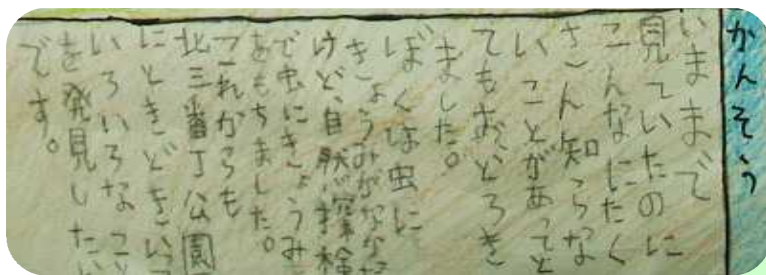 かんそう
いままで
見ていたのに
こんなにたく
さん知らな
いことがあってと
てもおどろき
ました。
ぼくは虫に
きょうみがなな
けど、自然探検
で虫にきょうみ
をもちました。
これからも
北三番丁公園
にときどきいっ
いろいろなこ
を発見した
です。